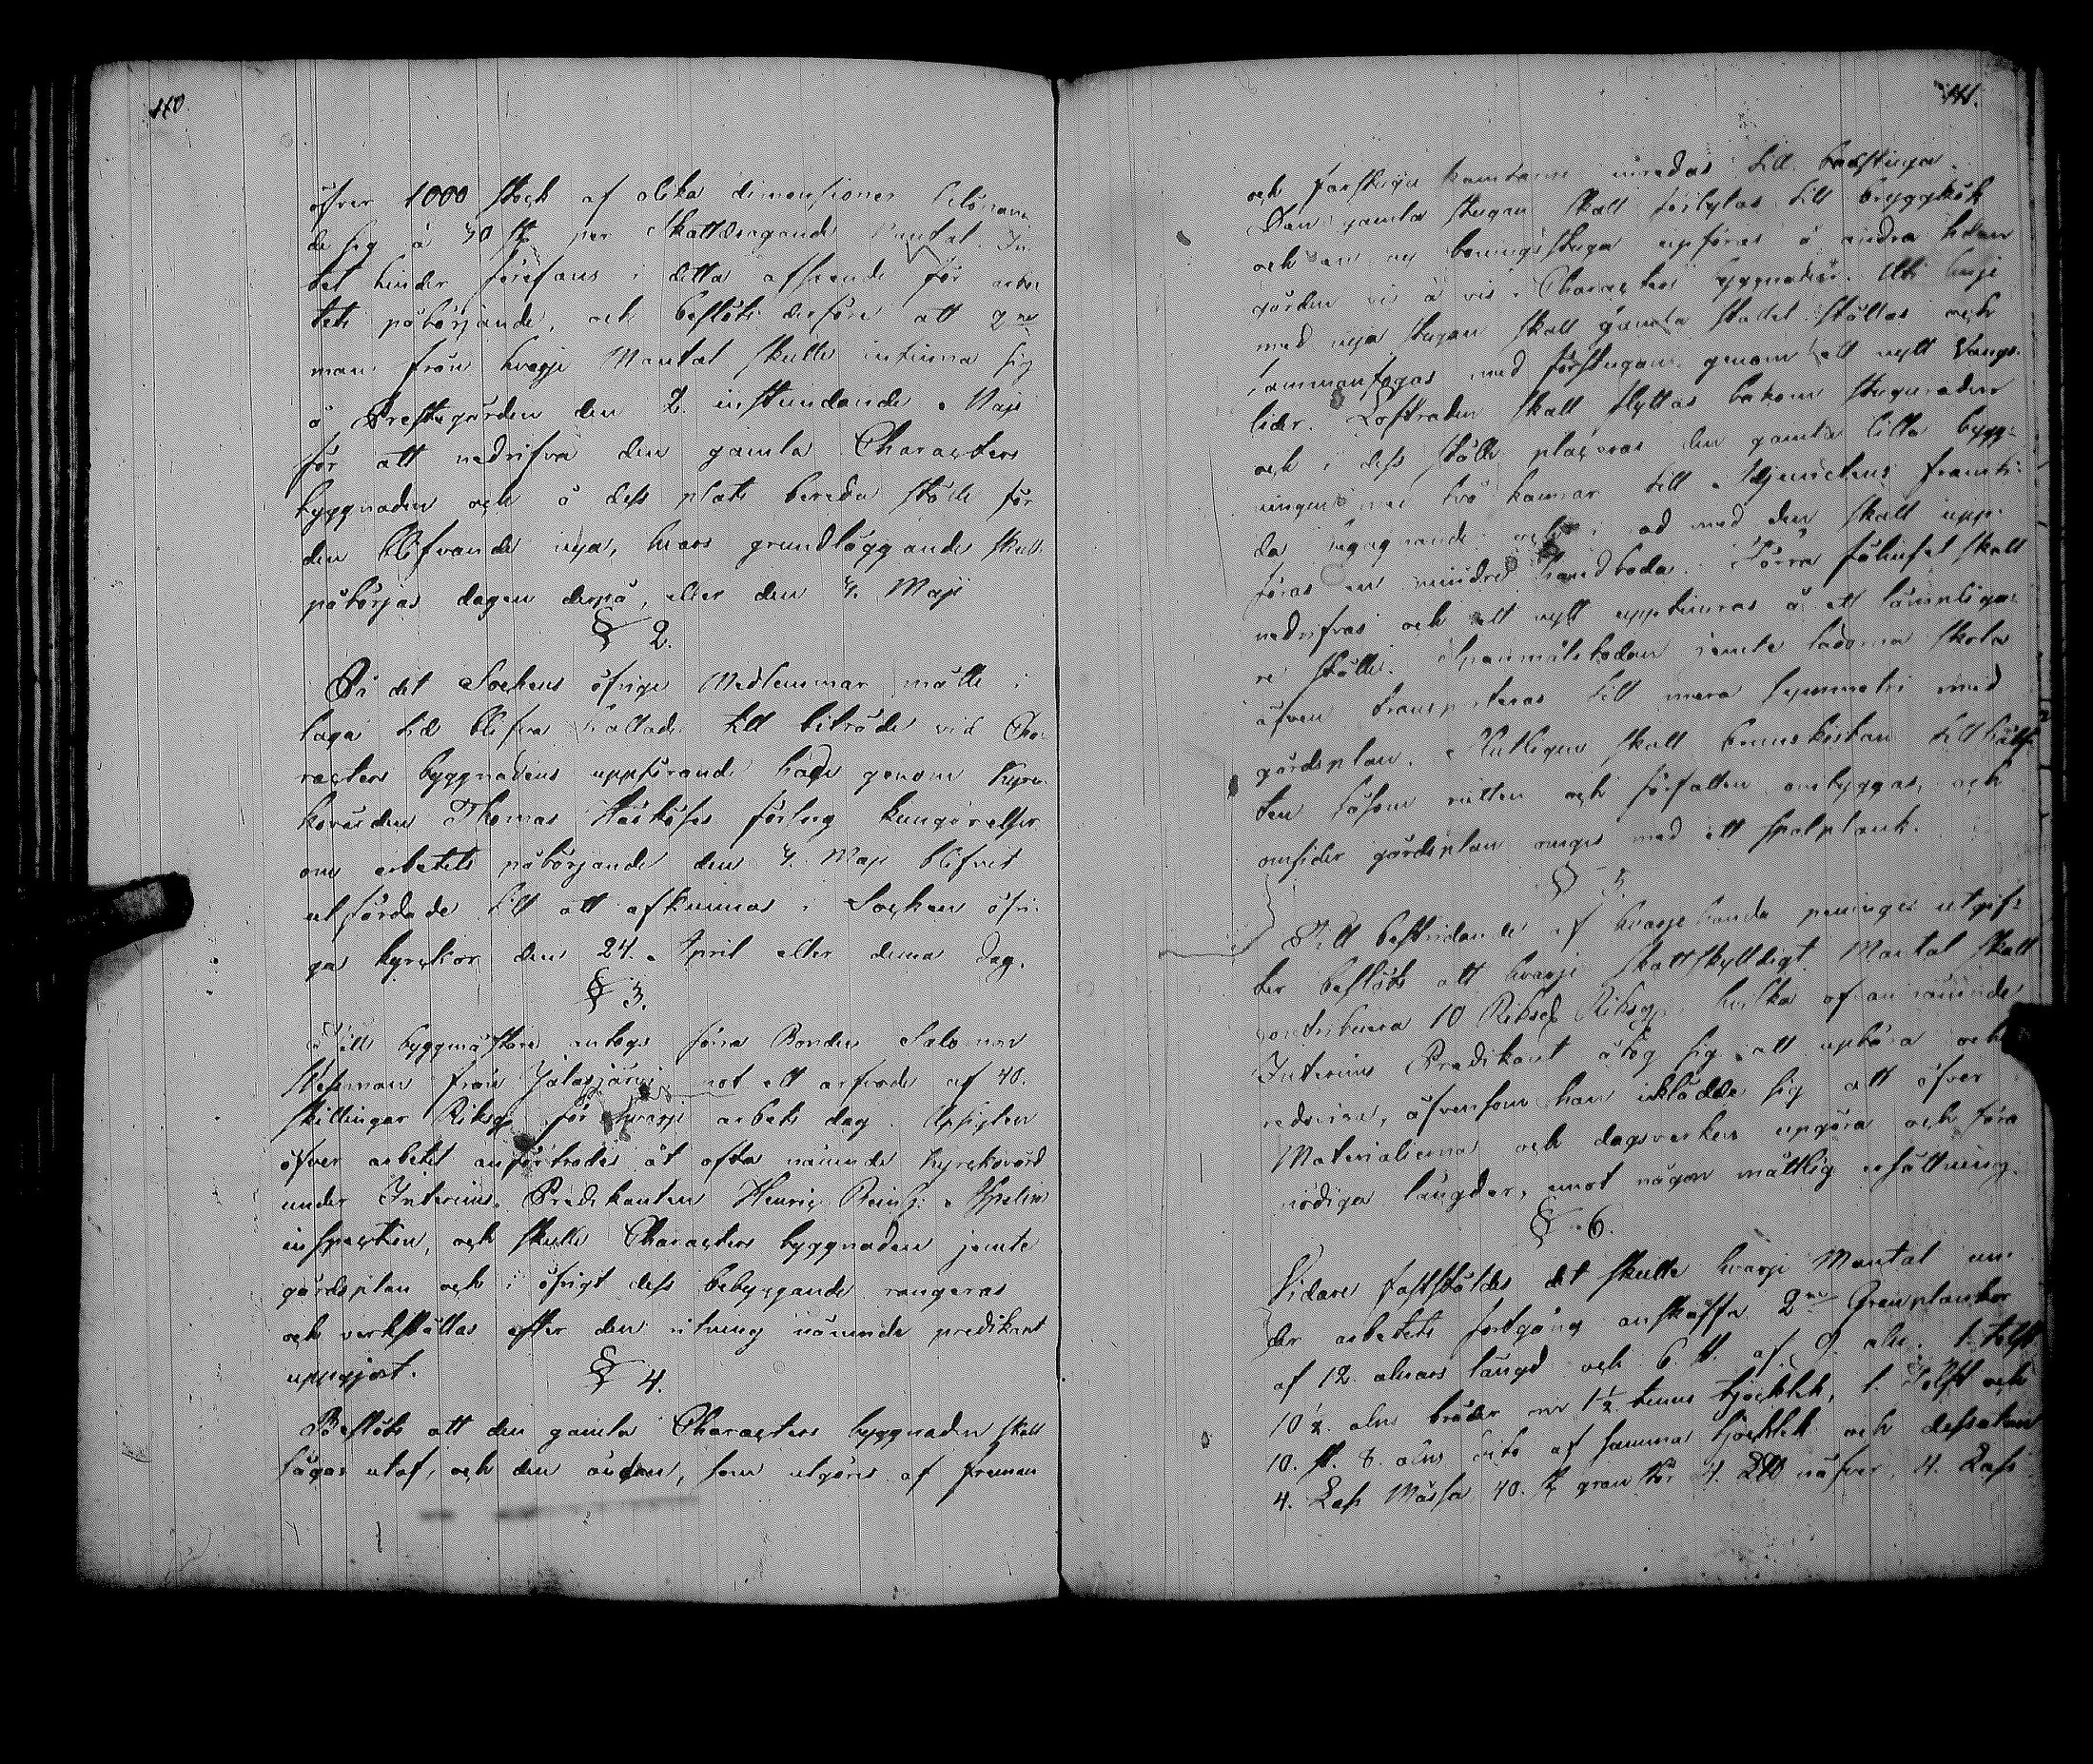 110.
öfver 1000 stock af olika dimensioner belönan-
de sig à 40 st per Skattdragande Mantal. In-
tet hinder förefans i detta afseende för arbe-
tets påbörjande, och beslöts derföre att 2ne
man från hvarje Mantal skulle infinna sig
å Prestegården den 2. instundande Maji
för att nedrifva den gamla Characters
byggnaden och å dess plats bereda ställe för
den blifvande nya, hvars grundläggande skulle
påbörjas dagen derpå, eller den 4. Maji
§ 2.
På det Sockens öfrige Medlemmar måtte i
laga tid blifva kallade till biträde vid Cha-
racters byggnadens uppförande hade genom kyrko
herden Thomas försorg kungörelser
om arbetets påbörjande den 4. Maji blifvit
utfärdade till att afkunnas i Socken öfri-
ga kyrckor den 24. April eller denna dag.
§ 3.
Till byggmästare antogs förra Bonden Salomon
från Jalasjärvi mot ett arfvode af 40.
skillingar Riksg. för hvarje arbets dag. Upsigten
öfver arbetet anförtrodes åt ofta nämnde kyrckovärd
under Interims Predikanten Henric Reinh:
inspection, och skulle Characters byggnaden jemte
gårdsplan och i öfrigt dess bebyggande rangeras
och verkställas efter den ritning nämnde predikant
uppgjort.
§ 4.
Beslöts att den gamla Characters byggnaden skall
sågas utaf, och den ändan, som utgöres af framan
111.
och farstugu kamrarne inredas till bakstuga.
Den gamla stugan skall förbytas till bryggkök
och en ny boningsstuga upföras å andra sidan
gården vis à vis Characters byggnaden. Uti linje
med nya stugan skall gamla stallet ställas och
sammanfogas med förstugan genom ett nytt Vangs-
lider. Loftraden skall flyttas bakom stuguraden
och i dess ställe placeras den gamla lilla bygg-
ningen med två kamrar till Adjunctens framti-
da begagnande och i rad med den skall upp-
föras en mindre handboda. Förra fähuset skall
nedrifvas och ett nytt upptimras å ett lämpliga-
re ställe. Spanmålsbodan jemte ladorna skola
äfven transporteras till mera symmetri med
gårdsplan. Slutligen skall brunskistan till hälf-
ten såsom rutten och förfallen ombyggas, och
omsider gårdsplan omges med ett spolplank.
§ 5.
Till bestridande af hvarjehanda penninge utgif-
ter beslöts att hvarje skattskyldigt Mantal skall
contribuera 10 Riksd Riksg, hvilka ofvannämnde
Interims Predikant åtog sig att upbära och
redovisa, äfvensom han iklädde sig att öfver
Materialierna och dagsverken upgöra och föra
nödiga längder, emot någon måttlig ersättning.
§ 6.
Vidare fastställdes det skulle hvarje Mantal un-
der arbetets fortgång anskaffa 2ne Granplankor
af 12. alnars längd och 6. st. af 9. aln. 1. tolft
10½. aln bräder om 1½ tums tjocklek, 1. Tolft och
10. st. 8. alns dito af samma tjocklek och dessutom
4. Lass Måssa 40. st gran 4. näfver, 4. Lass